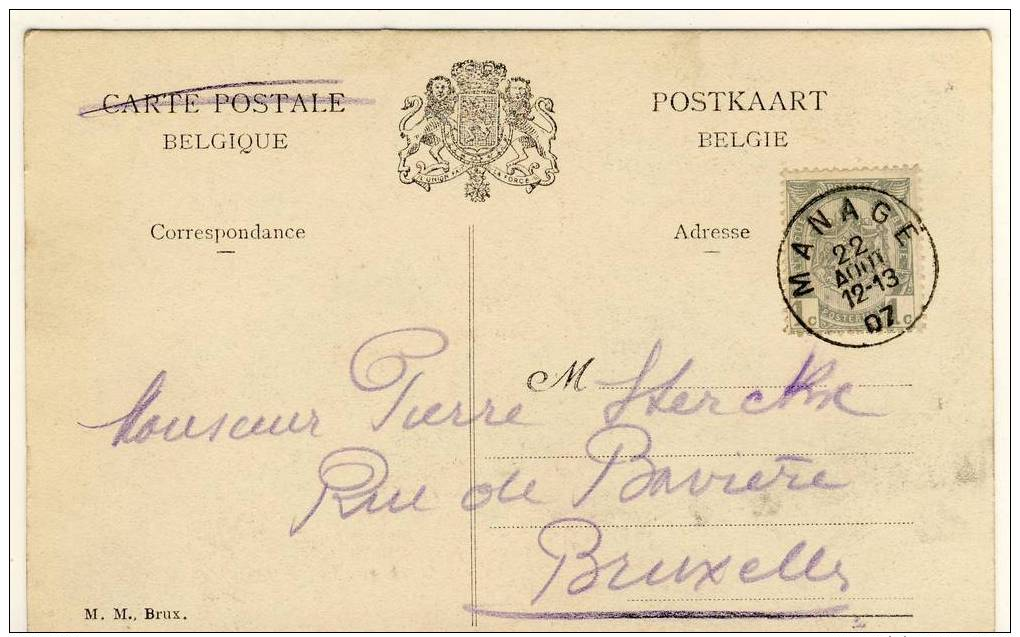 CARTE POSTALE
BELGIQUE
POSTKAART
BELGIE
L'UNION FAIT LA FORCE
Correspondance
Adresse
MANAGE
22
AOUT
12-13
07
1c
1c
M
Monsieur Pierre Sterckx
Rue de Bavière
Bruxelles
M. M., Brux.